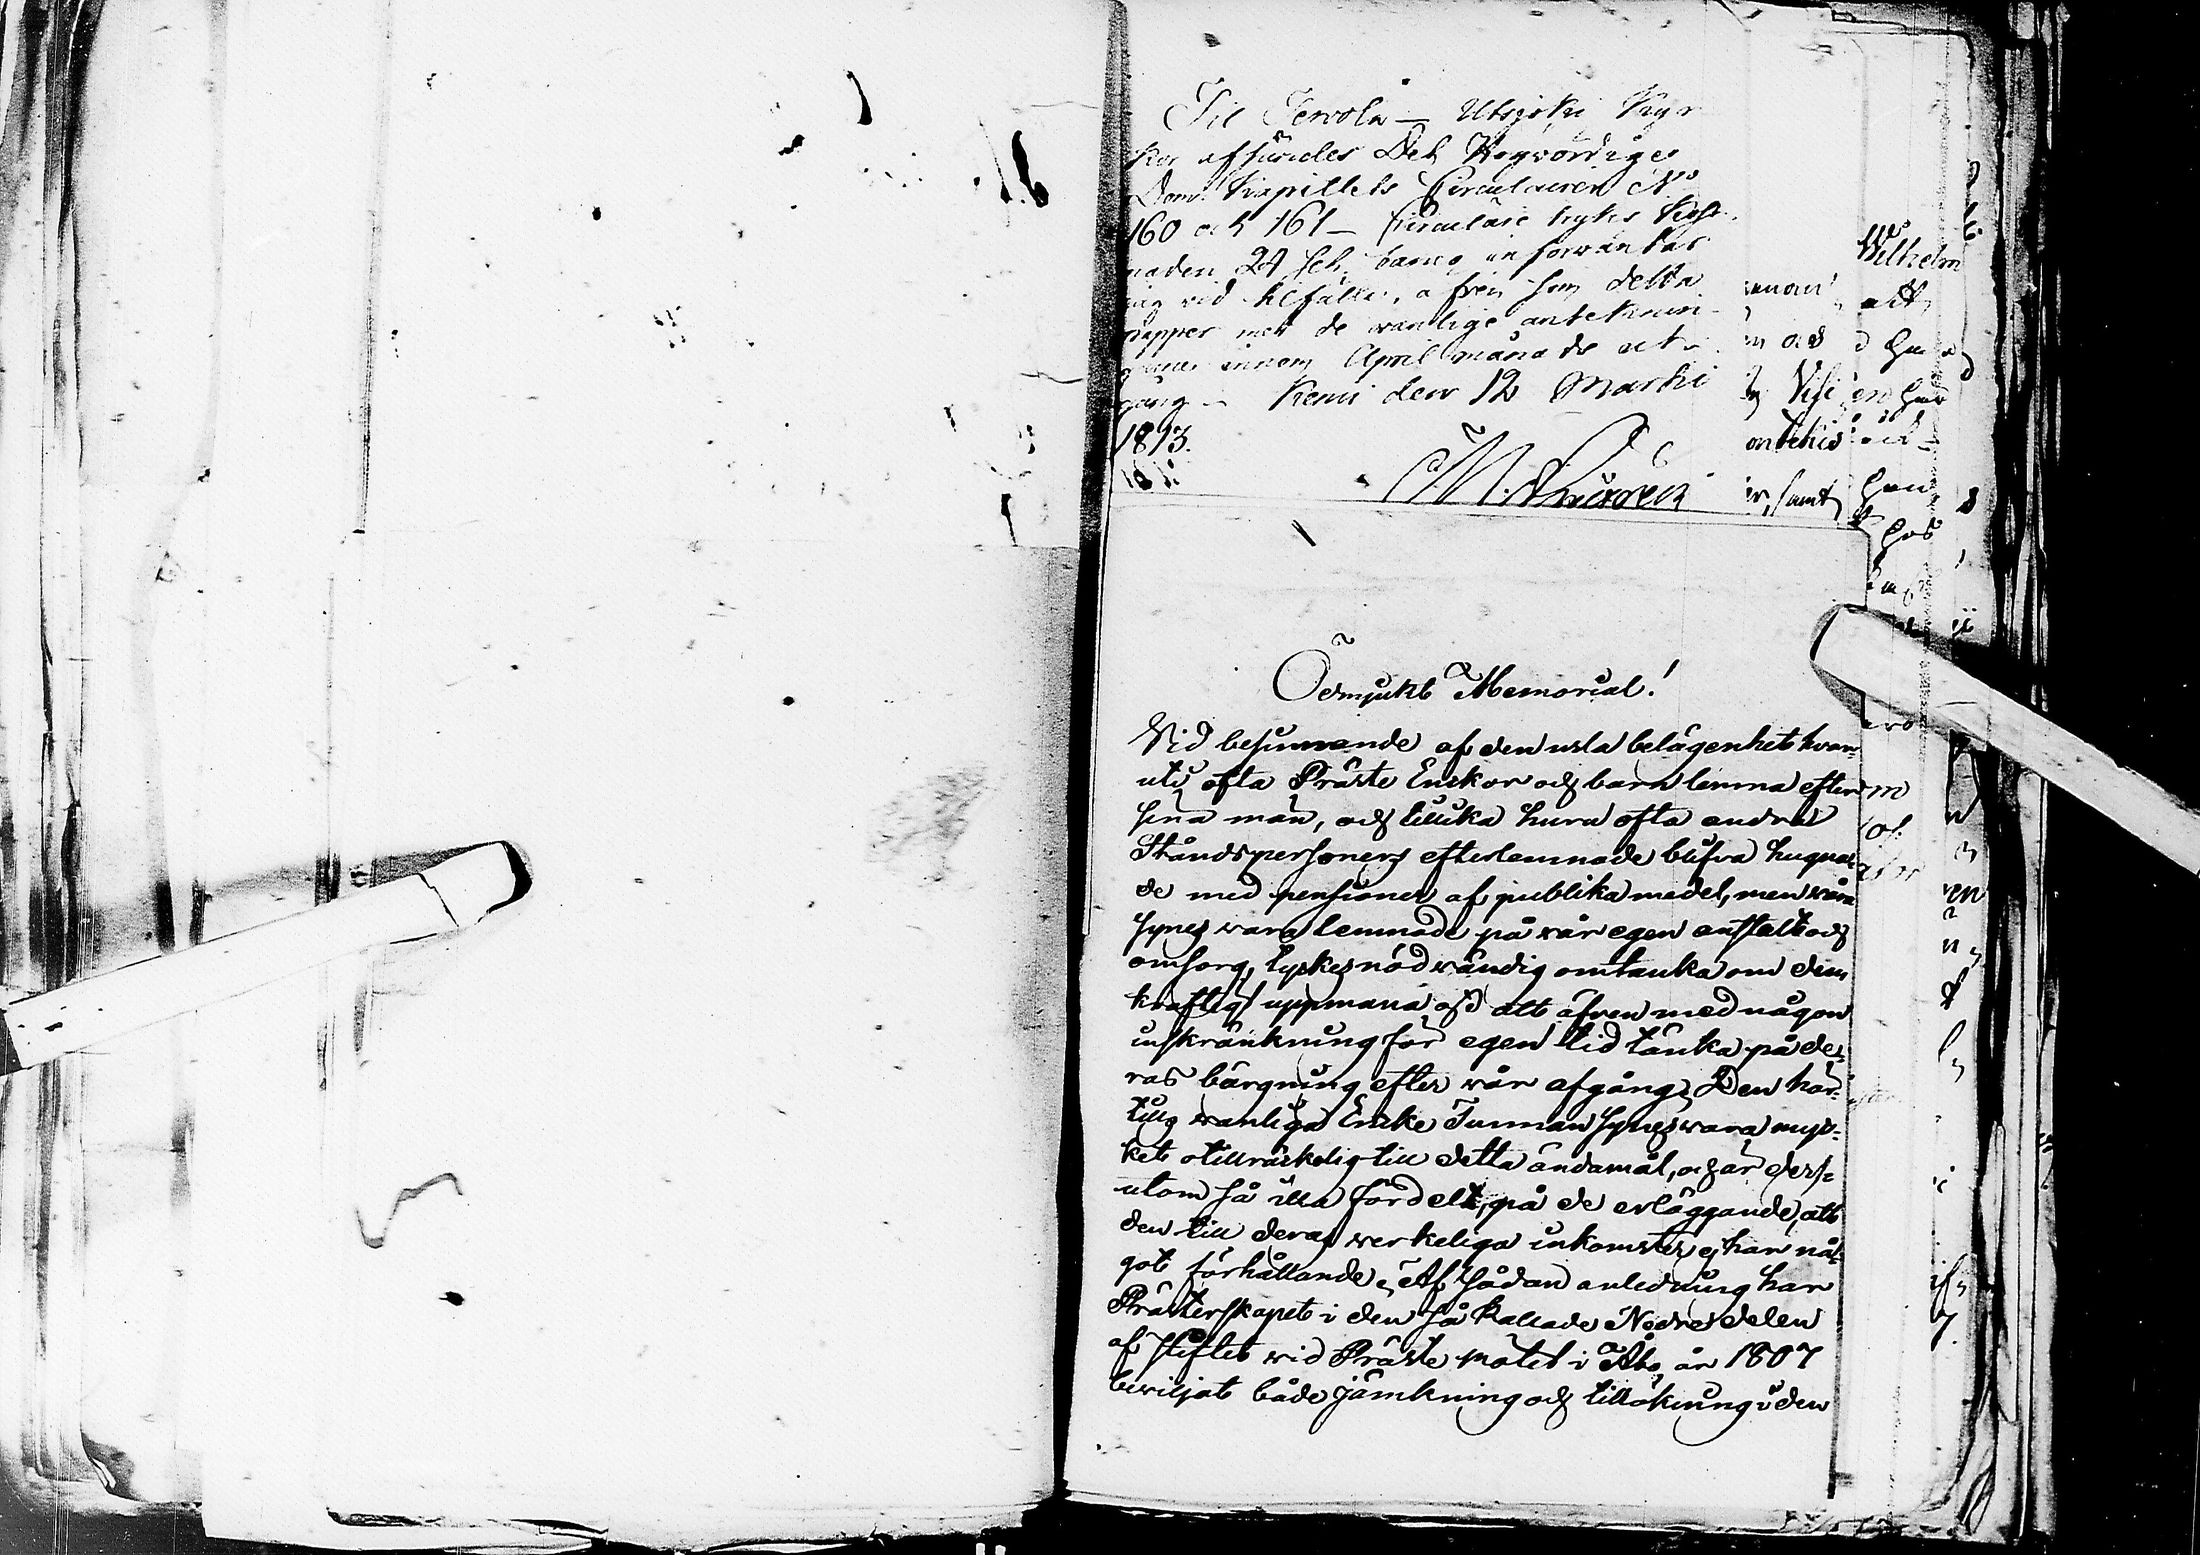 Til Tervola – Utsjoki Kyr
kor afsändes Det Högvördige
Dom Kapitlets Circulairen No
160 och 161 – Circulaire
naden 24 sch. banco, in förväntar
jag vid tilfälle, äfven som detta
papper med de vanlige antekniin-
innom April månads ut-
gång – Kemi den 12 Martii
1813.
Ödmjukt Memorial!
Vid besinnande af den usla belägenhet hvar-
uti ofta Präste Enkor och barn lemna efter
sina män, och tillika huru ofta andra
Ståndspersoners efterlemnade blifva hugna-
de med pensioner af publika medel, men våra
synes vara lemnade på vår egen anstalt och
omsorg, tyckes nödvändig omtanka om dem
kraftigt uppmana oss att äfven med någon
inskränkning för egen tid tänka på de-
ras bärgning efter vår afgång. Den här-
tills vanliga Enke Tunnan synes vara myc-
ket otillräckelig till detta ändamål, och är dess-
utom så illa fördelt, på de erläggande, att
den till deras verkeliga inkomster ej har nå-
got förhållande. Af sådan anledning har
Prästerskapet i den så kallade Nedre delen
af stiftet vid Präste mötet i Åbo, år 1807
beviljat både jämkning och tillökning i den
Wilhelm
att
samt
hos